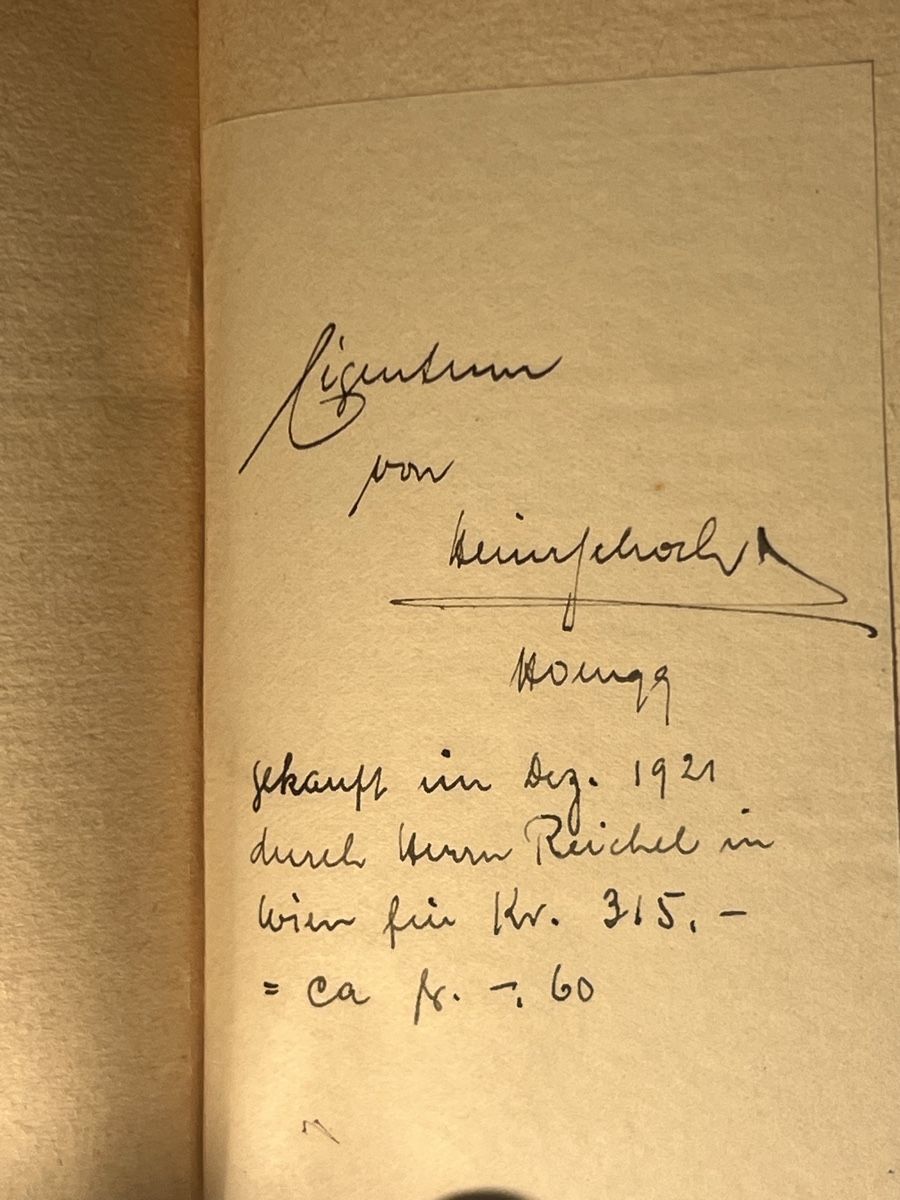 Eigentum
von
Heinr Schoch
Hoengg
gekauft im Dez. 1921
durch Herrn Reichel in
Wien für Kr. 315.–
= ca fr. –.60